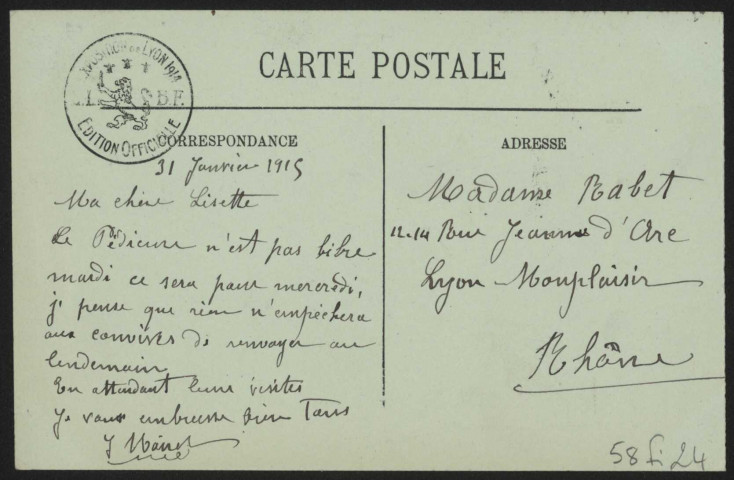 EXPOSITION DE LYON 1914
B.F.
EDITION OFFICIELLE
CARTE POSTALE
CORRESPONDANCE
31 Janvier 1915
Ma chère Lisette
Le Pédicure n'est pas libre
mardi ce sera pour mercredi,
j' pense que rien n'empêchera
aux convives de renvoyer au
lendemain
En attendant leurs visites
Je vous embrasse bien Tous
ADRESSE
Madame Rabet
12-14 Rue Jeanne d'Arc
Lyon Monplaisir
Rhône
58 fi 24